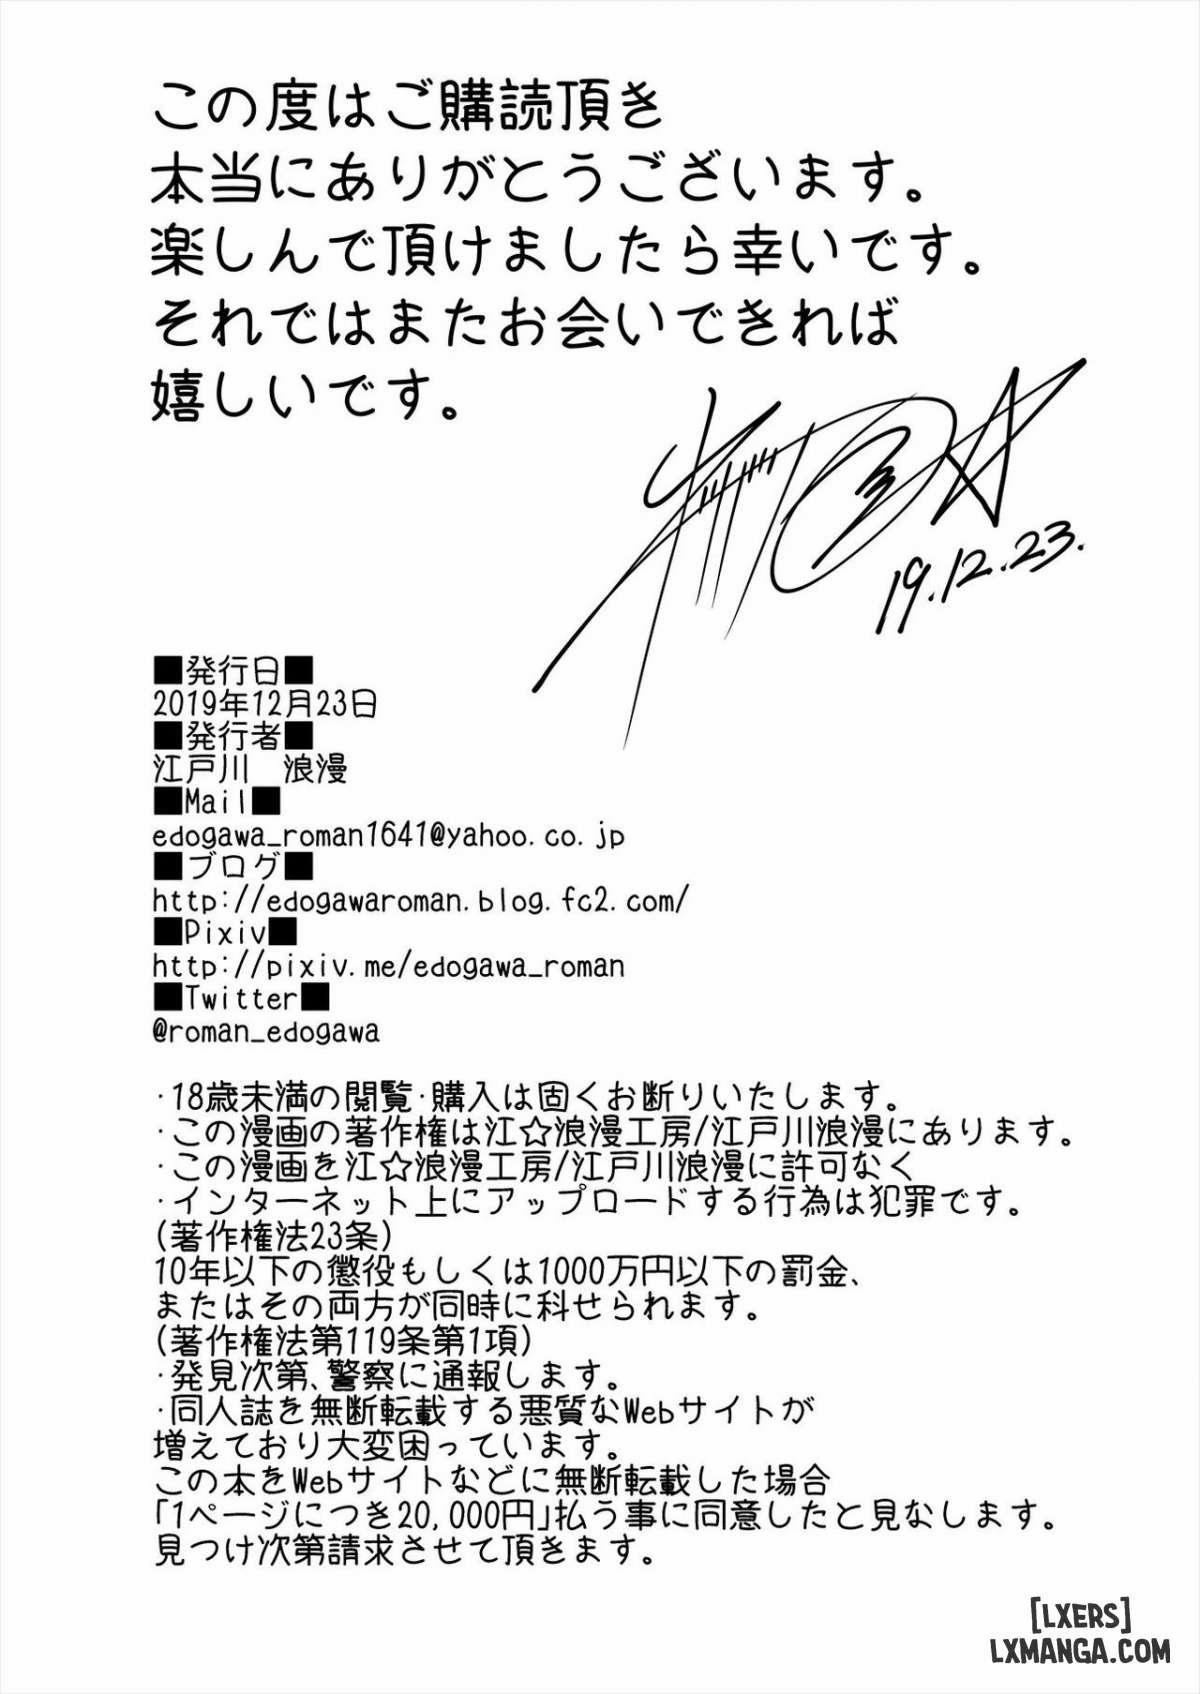 この度はご購読頂き
本当にありがとうございます。
楽しんで頂けましたら幸いです。
それではまたお会いできれば
嬉しいです。
19.12.23.
■発行日■
2019年12月23日
■発行者■
江戸川　浪漫
■Mail■
edogawa_roman1641@yahoo.co.jp
■ブログ■
http://edogawaroman.blog.fc2.com/
■Pixiv■
http://pixiv.me/edogawa_roman
■Twitter■
@roman_edogawa
・18歳未満の閲覧・購入は固くお断りいたします。
・この漫画の著作権は江☆浪漫工房/江戸川浪漫にあります。
・この漫画を江☆浪漫工房/江戸川浪漫に許可なく
・インターネット上にアップロードする行為は犯罪です。
(著作権法23条)
10年以下の懲役もしくは1000万円以下の罰金、
またはその両方が同時に科せられます。
(著作権法第119条第1項)
・発見次第、警察に通報します。
・同人誌を無断転載する悪質なWebサイトが
増えており大変困っています。
この本をWebサイトなどに無断転載した場合
「1ページにつき20,000円」払う事に同意したと見なします。
見つけ次第請求させて頂きます。
[LXERS]
LXMANGA.COM